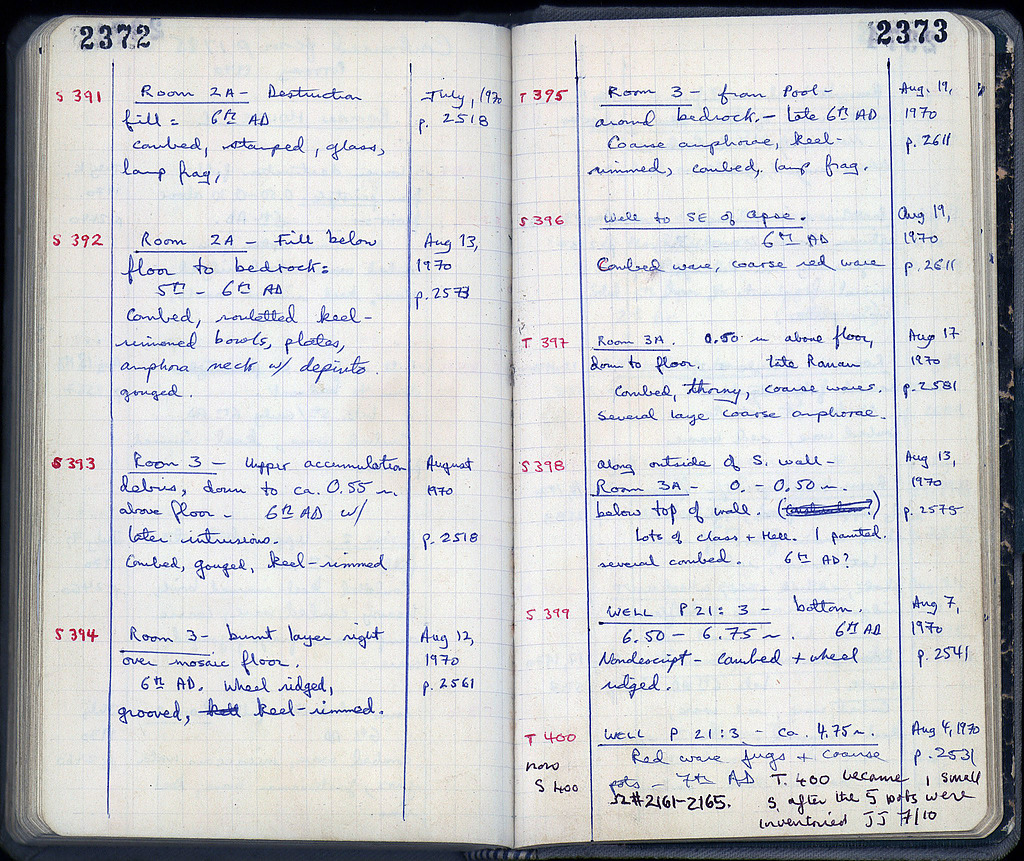 2372
S 391 Room 2A - Destruction July, 1970
fill = 6th AD p. 2518
combed, stamped, glass,
lamp frag,
S 392 Room 2A - Fill below Aug 13,
floor to bedrock: 1970
5th - 6th AD p. 2573
Combed, rouletted keel-
rimmed bowls, plates,
amphora neck w/ dipinto.
gouged.
S 393 Room 3 - Upper accumulation August
debris, down to ca. 0.55 m. 1970
above floor - 6th AD w/
later intrusions. p. 2518
Combed, gouged, keel-rimmed
S 394 Room 3 - burnt layer right Aug 12,
over mosaic floor. 1970
6th AD. Wheel ridged, p. 2561
grooved, keel-rimmed.
2373
T 395 Room 3 - from Pool - Aug. 19,
around bedrock. - late 6th AD 1970
Coarse amphorae, keel- p. 2611
rimmed, combed, lamp frag.
S 396 Well to SE of apse. Aug 19,
6th AD 1970
Combed ware, coarse red ware p. 2611
T 397 Room 3A. 0.50 m above floor, Aug 17
down to floor. late Roman 1970
Combed, thorny, coarse wares. p. 2581
several large coarse amphorae.
S 398 along outside of S. wall - Aug 13,
Room 3A - 0. - 0.50 m. 1970
below top of wall. p. 2575
Lots of class + Hell. 1 painted.
several combed. 6th AD?
S 399 WELL P 21:3 - bottom. Aug 7,
6.50 - 6.75 m. 6th AD 1970
Nondescript - combed + wheel p. 2541
ridged.
T 400 WELL P 21:3 - ca. 4.75 m. Aug 4, 1970
now Red ware jugs + coarse p. 2531
S 400 pots - 7th AD T. 400 became 1 small
#2161-2165. S. after the 5 pots were
inventoried JJ 7/10